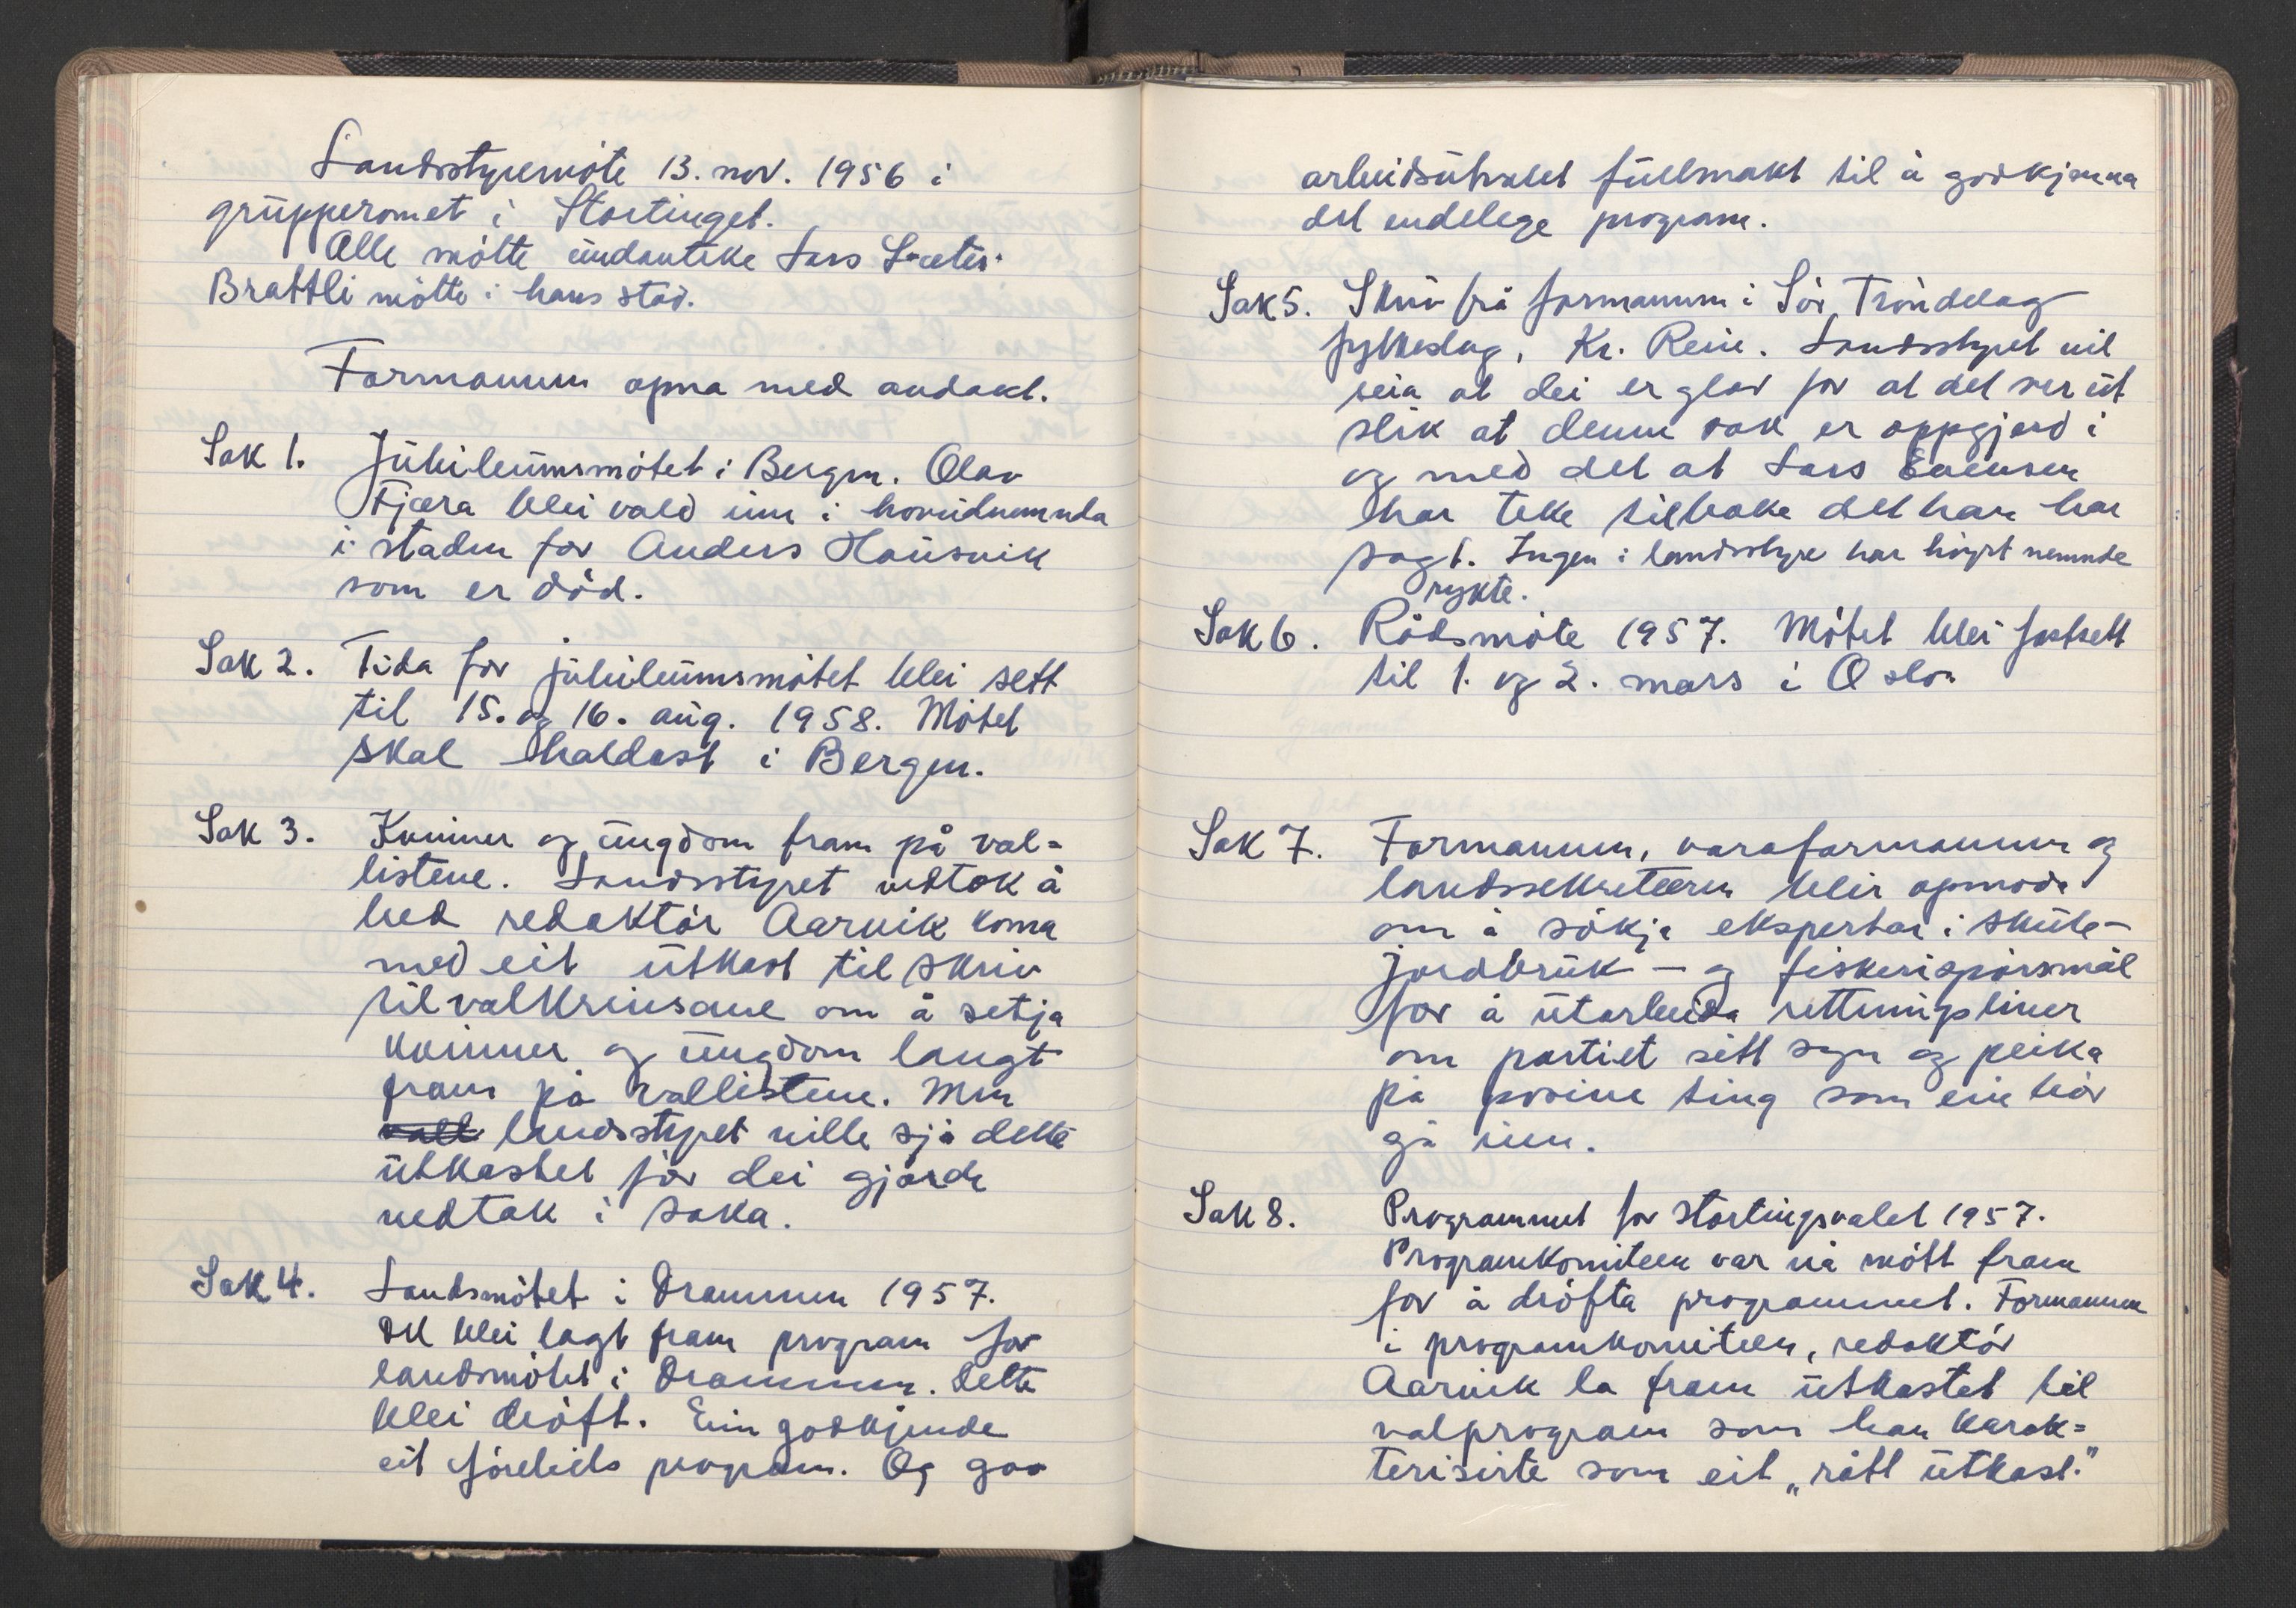 Landsstyremöte 13. nov. 1956 i
grupperomet i Stortinget.
Alle mötte undanteke Lars Sæter.
Brattli mötte i hans stad.
Formannen opna med andakt.
Sak 1. Jubileumsmötet i Bergen. Olav
Fjæra blei vald inn i hovudnemnda
i staden for Anders Hausvik
som er död.
Sak 2. Tida for jubileumsmötet blei sett
til 15. og 16. aug. 1958. Mötet
skal haldast i Bergen.
Sak 3. Kvinner og ungdom fram på val=
listene. Landsstyret vedtok å
bed redaktör Aarvik koma
med eit utkast til skriv
til valkrinsane om å setja
kvinner og ungdom langt
fram på vallistene. Men
landsstyret ville sjå dette
utkastet för dei gjorde
vedtak i saka.
Sak 4. Landsmötet i Drammen 1957.
Det blei lagt fram program for
landsmötet i Drammen. Dette
blei dröft. Ein godkjende
eit förebels program. Og gav
arbeidsutvalet fullmakt til å godkjenna
det endelege program.
Sak 5. Skriv frå formannen i Sör Tröndelag
fylkeslag, Kr. Rein. Landsstyret vil
seia at dei er glad for at det ser ut
slik at denne sak er oppgjord i
og med det at Lars Evensen
har teke tilbake det han har
sagt. Ingen i landsstyre har höyrt nemnde
rykte.
Sak 6. Rådsmöte 1957. Mötet blei fastsett
til 1. og 2. mars i Oslo.
Sak 7. Formannen, varaformannen og
landssekretæren blir opmoda
om å sökja ekspertar i skule-
jordbruk - og fiskerispörsmål
for å utarbeida rettningsliner
om partiet sitt syn og peika
på positive ting som ein bör
gå inn.
Sak 8. Programmet for stortingsvalet 1957.
Programkomiteen var nå mött fram
for å dröfta programmet. Formannen
i programkomiteen, redaktör
Aarvik la fram utkastet til
valprogram som han karak=
teriserte som eit „rått utkast."